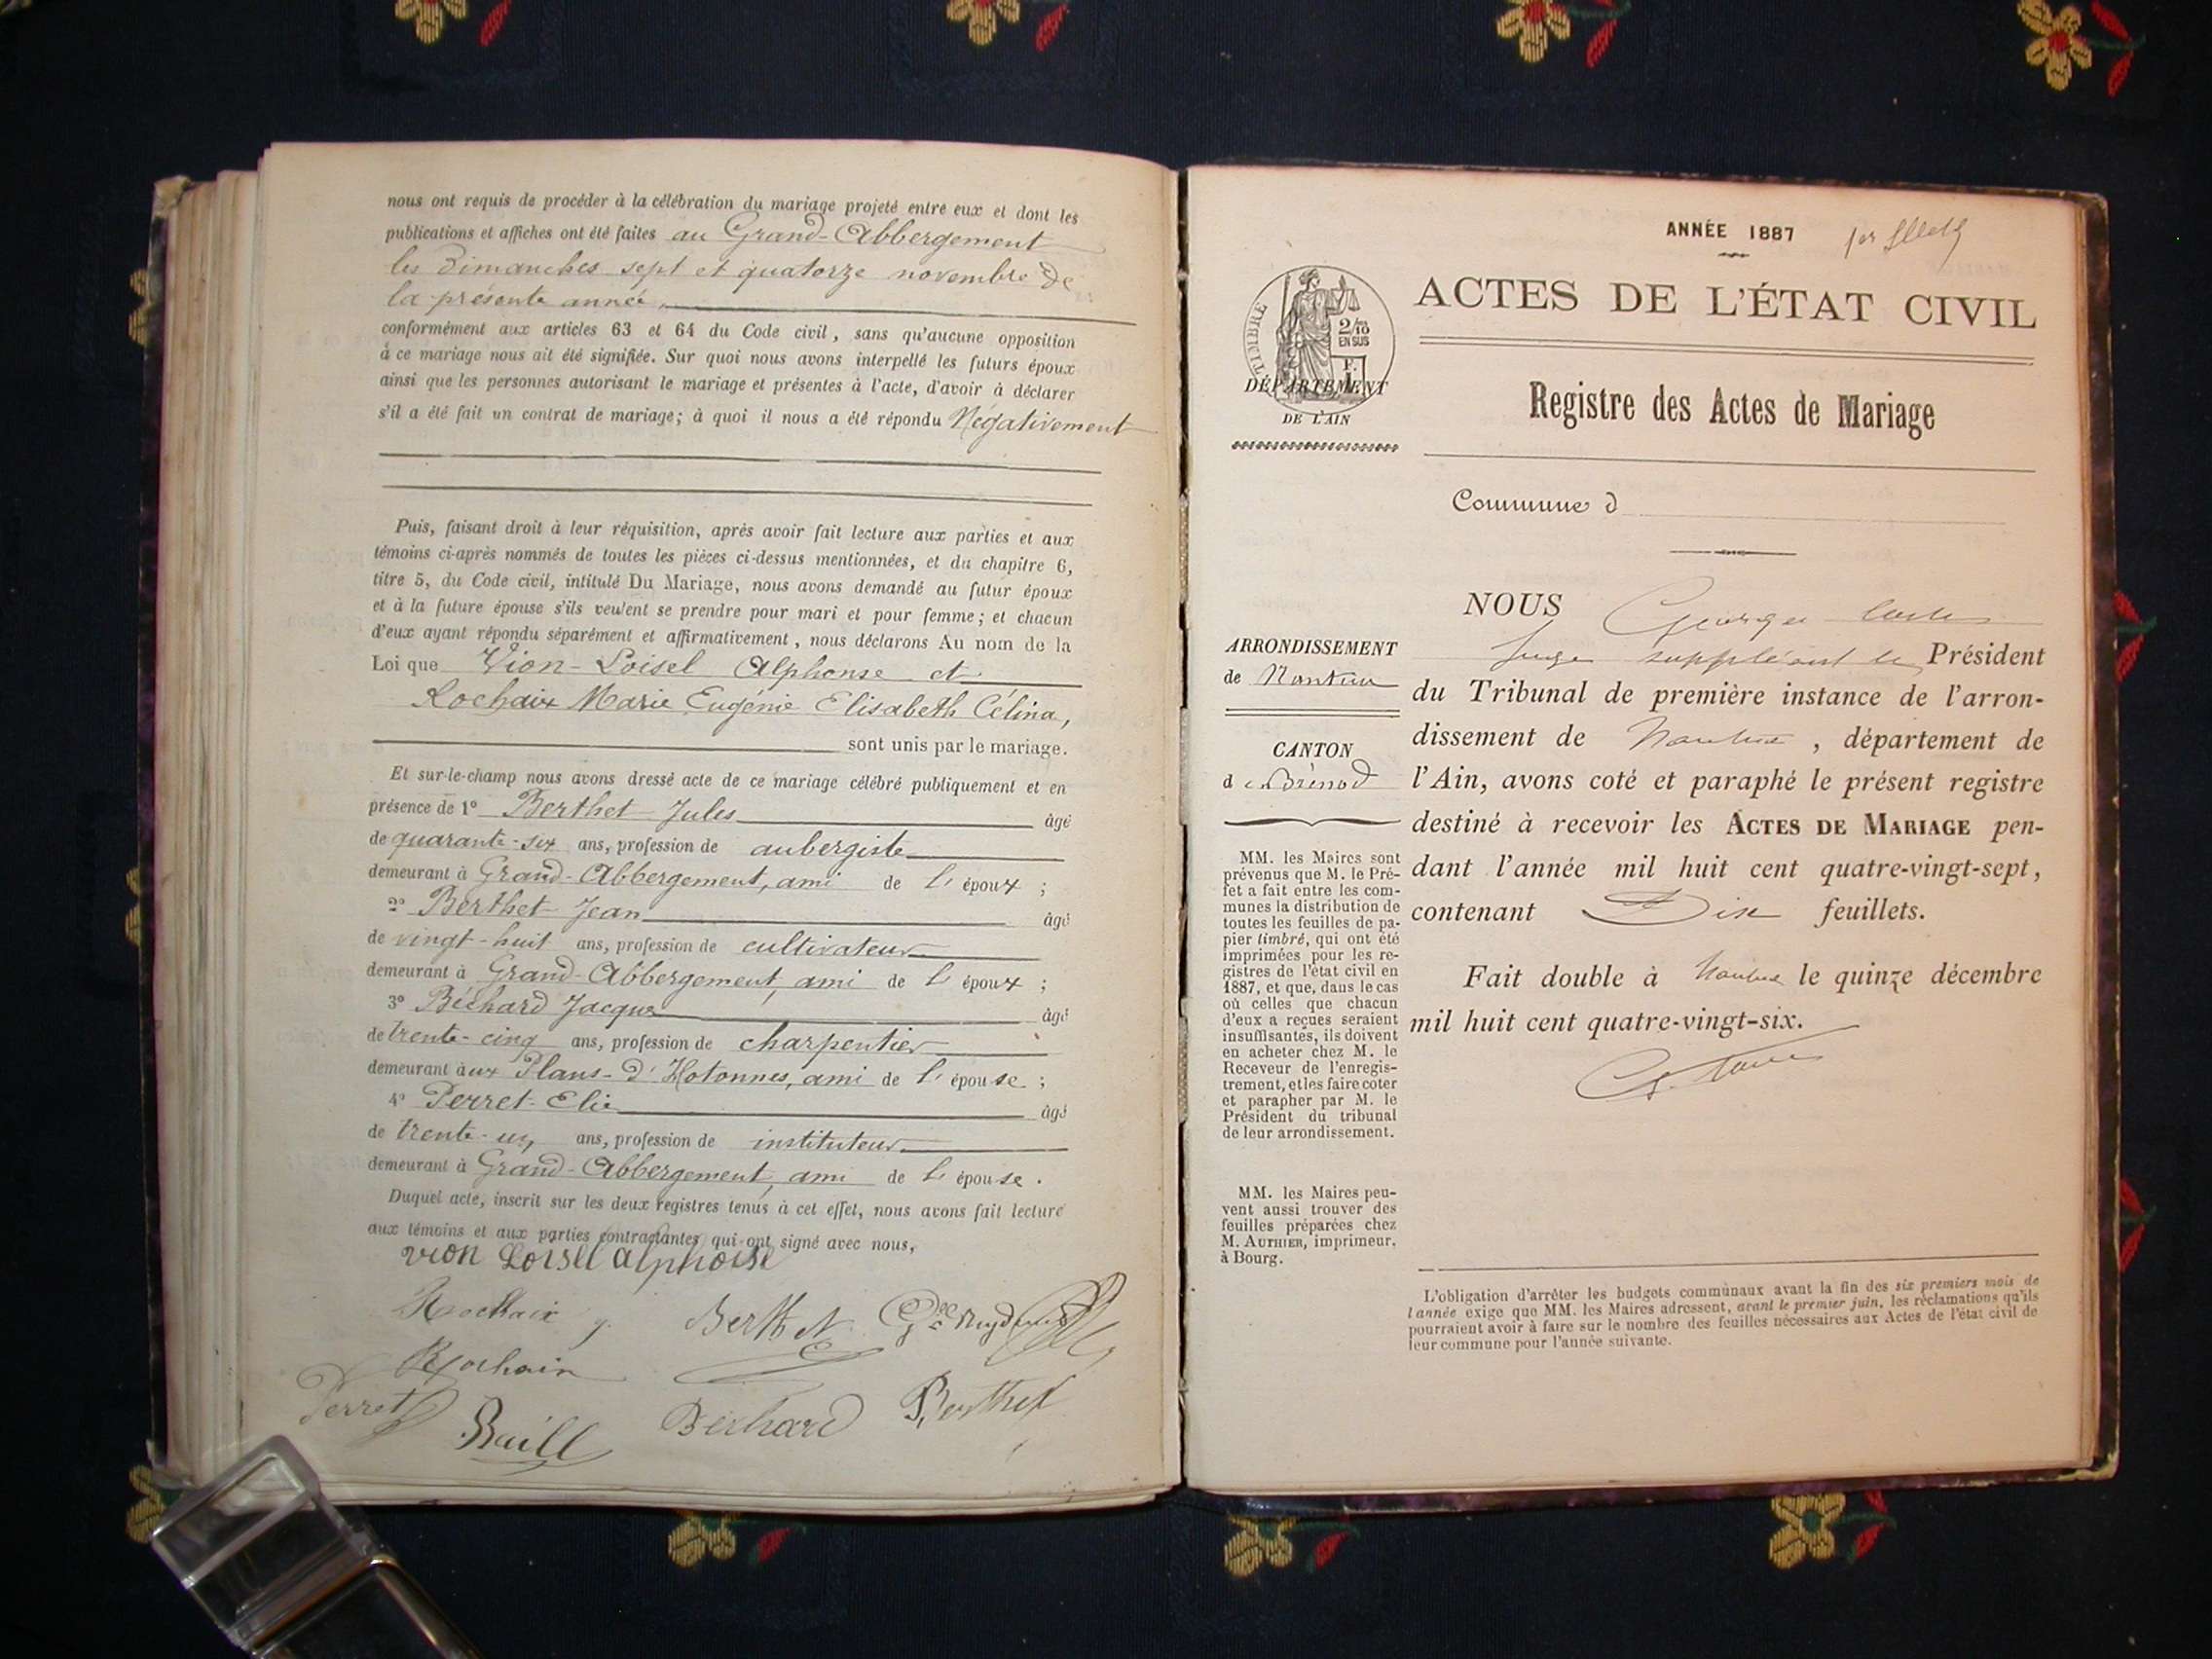 nous ont requis de procéder à la célébration du mariage projeté entre eux et dont les
publications et affiches ont été faites au Grand-Abbergement
les Dimanches sept et quatorze novembre de
la présente année,
conformément aux articles 63 et 64 du Code civil, sans qu'aucune opposition
à ce mariage nous ait été signifiée. Sur quoi nous avons interpellé les futurs époux
ainsi que les personnes autorisant le mariage et présentes à l'acte, d'avoir à déclarer
s'il a été fait un contrat de mariage; à quoi il nous a été répondu Négativement
Puis, faisant droit à leur réquisition, après avoir fait lecture aux parties et aux
témoins ci-après nommés de toutes les pièces ci-dessus mentionnées, et du chapitre 6,
titre 5, du Code civil, intitulé Du Mariage, nous avons demandé au futur époux
et à la future épouse s'ils veulent se prendre pour mari et pour femme; et chacun
d'eux ayant répondu séparément et affirmativement, nous déclarons Au nom de la
Loi que Vion-Loisel Alphonse et
Rochaix Marie Eugénie Elisabeth Célina,
sont unis par le mariage.
Et sur-le-champ nous avons dressé acte de ce mariage célébré publiquement et en
présence de 1° Berthet Jules âgé
de quarante-six ans, profession de aubergiste
demeurant à Grand-Abbergement, ami de l'époux ;
2° Berthet Jean âgé
de vingt-huit ans, profession de cultivateur
demeurant à Grand-Abbergement, ami de l'époux ;
3° Béchard Jacque âgé
de trente-cinq ans, profession de charpentier
demeurant aux Plans-d'Hotonnes, ami de l'épouse ;
4° Perret Elie âgé
de trente-un ans, profession de instituteur
demeurant à Grand-Abbergement, ami de l'épouse.
Duquel acte, inscrit sur les deux registres tenus à cet effet, nous avons fait lecture
aux témoins et aux parties contractantes qui ont signé avec nous,
vion Loisel alphonse
Rochaix j. Berthet
Rochaix
Perret Baill Béchard Berthet
ANNÉE 1887
ACTES DE L'ÉTAT CIVIL
TIMBRE
2/10
EN SUS
DÉPARTEMENT
DE L'AIN
Registre des Actes de Mariage
Commune d
NOUS Georges
Juge suppléant le Président
du Tribunal de première instance de l'arron-
dissement de Nantua, département de
l'Ain, avons coté et paraphé le présent registre
destiné à recevoir les ACTES DE MARIAGE pen-
dant l'année mil huit cent quatre-vingt-sept,
contenant Dix feuillets.
Fait double à Nantua le quinze décembre
mil huit cent quatre-vingt-six.
ARRONDISSEMENT
de Nantua
CANTON
de Brénod
MM. les Maires sont
prévenus que M. le Pré-
fet a fait entre les com-
munes la distribution de
toutes les feuilles de pa-
pier timbré, qui ont été
imprimées pour les re-
gistres de l'état civil en
1887, et que, dans le cas
où celles que chacun
d'eux a reçues seraient
insuffisantes, ils doivent
en acheter chez M. le
Receveur de l'enregis-
trement, et les faire coter
et parapher par M. le
Président du tribunal
de leur arrondissement.
MM. les Maires peu-
vent aussi trouver des
feuilles préparées chez
M. AUTHIER, imprimeur,
à Bourg.
L'obligation d'arrêter les budgets communaux avant la fin des six premiers mois de
l'année exige que MM. les Maires adressent, avant le premier juin, les réclamations qu'ils
pourraient avoir à faire sur le nombre des feuilles nécessaires aux Actes de l'état civil de
leur commune pour l'année suivante.